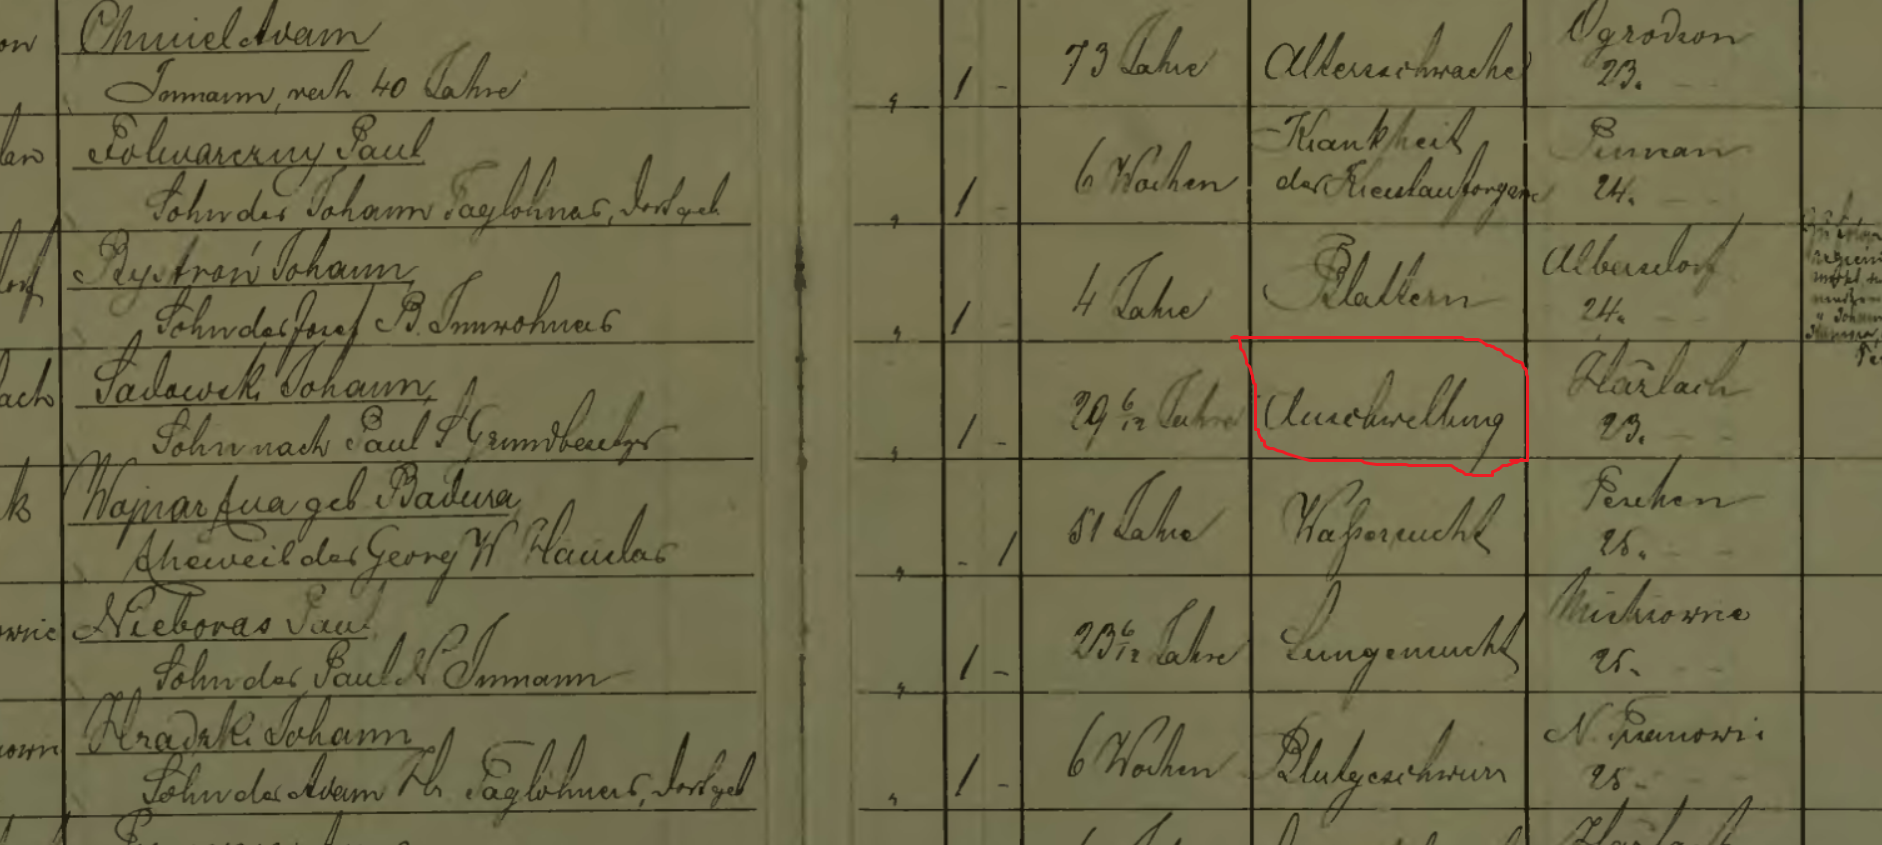 Chmiel Adam
Inmann, verh. 40 Jahre
1 -
73 Jahre
Altersschwäche
Ogrodzon
23.
Folwarczny Paul
Sohn des Johann Taglöhners, dort geb
1
6 Wochen
Krankheit
der Kreislauforgane
24.
Bystroń Johann,
Sohn des Josef B. Inwohners
1
4 Jahre
Blattern
Albersdorf
24.
Sadowski Johann,
Sohn nach Paul S Grundbesitzer
1 -
29 6/12 Jahre
Anschwellung
Hażlach
23.
Wojnar Eva geb Badura,
Eheweib des Georg W Häusler
- 1
51 Jahre
Wassersucht
25.
Nieboras Paul
Sohn des Paul N Inmann
1 -
23 6/12 Jahre
Lungensucht
25.
Hradzki Johann
Sohn des Adam Hr Taglöhners, dort geb
1 -
6 Wochen
Blutgeschwür
25